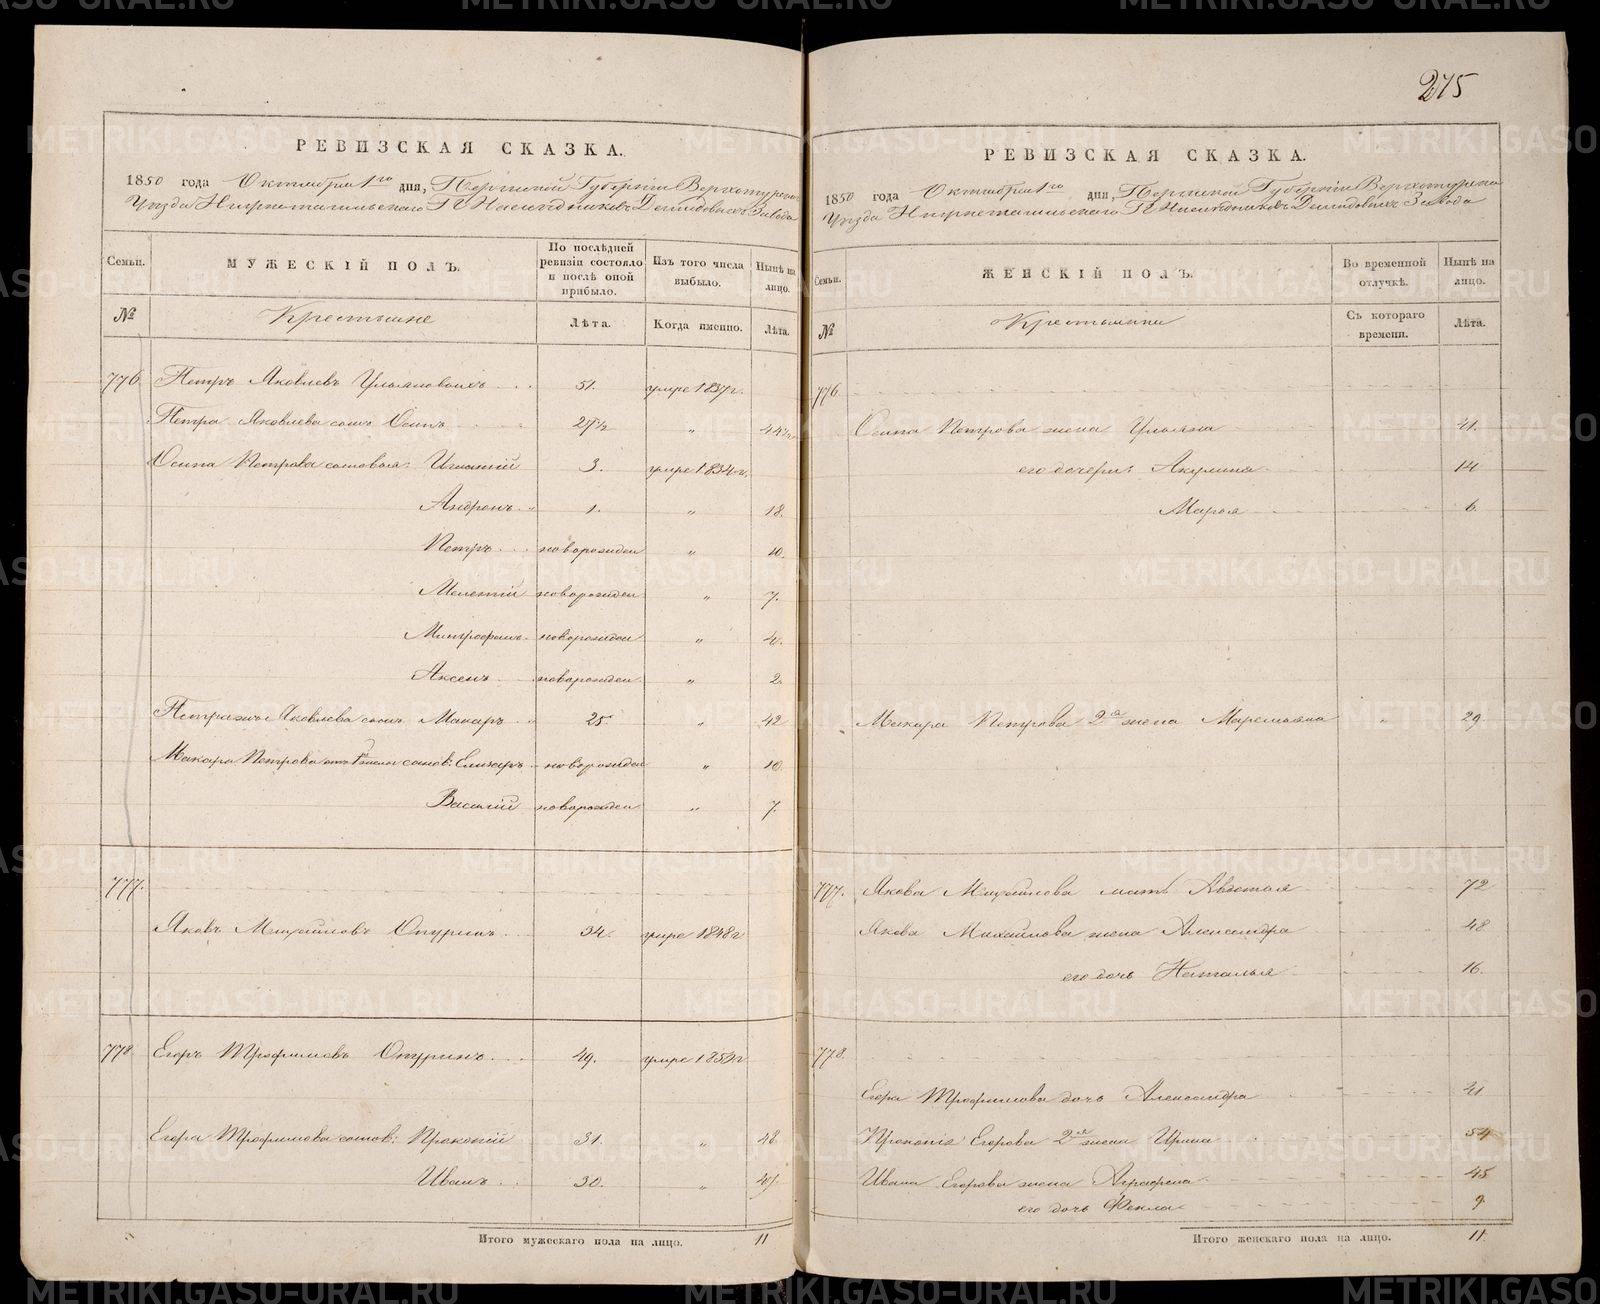 275
РЕВИЗСКАЯ СКАЗКА.
1850 года Октября 1го дня, Пермской Губерніи Верхотурскаго
Уѣзда Нижнетагильскаго Гг. Наслѣдниковъ Демидовыхъ Завода
Семьи. МУЖЕСКІЙ ПОЛЪ. По послѣдней ревизіи состояло и послѣ оной прибыло. Изъ того числа выбыло. Нынѣ на лицо.
№ Крестьяне Лѣта. Когда именно. Лѣта.
776. Петръ Яковлевъ Ульяновыхъ 51. умре 1837 г.
Петра Яковлева сынъ Осипъ 27½ " 44½
Осипа Петрова сыновья: Игнатій 3. умре 1834 г.
Андронъ 1. " 18.
Петръ новорожден " 10.
Мелентій новорожден " 7.
Митрофанъ новорожден " 4.
Аксенъ новорожден " 2.
Петра Яковлева сынъ Макаръ 25 " 42
Макара Петрова отъ 1й жены сынов: Елизаръ новорожден " 10.
Василій новорожден " 7.
777.
Яковъ Михайловъ Опуринъ 34. умре 1848 г
778 Егоръ Трофимовъ Опуринъ 49. умре
Егора Трофимова сынов: Прокопій 31. " 48.
Иванъ 30. "
Итого мужескаго пола на лицо. 11
РЕВИЗСКАЯ СКАЗКА.
1850 года Октября 1го дня, Пермской Губерніи Верхотурскаго
Уѣзда Нижнетагильскаго Гг. Наслѣдниковъ Демидовыхъ Завода
Семьи. ЖЕНСКІЙ ПОЛЪ. Во временной отлучкѣ. Нынѣ на лицо.
№ Крестьянки Съ котораго времени. Лѣта.
776.
Осипа Петрова жена Ульяна 41.
его дочери: Акулина 14
Марья 6.
Макара Петрова 2я жена Маремьяна " 29.
777. Якова Михайлова мать Авдотья 72
Якова Михайлова жена Александра 48
его дочь Наталья 16.
778.
Егора Трофимова дочь Александра 21
Прокопія Егорова 2я жена Ирина 54
Ивана Егорова жена Аграфена 45
его дочь Фекла 9
Итого женскаго пола на лицо. 11
METRIKI.GASO-URAL.RU